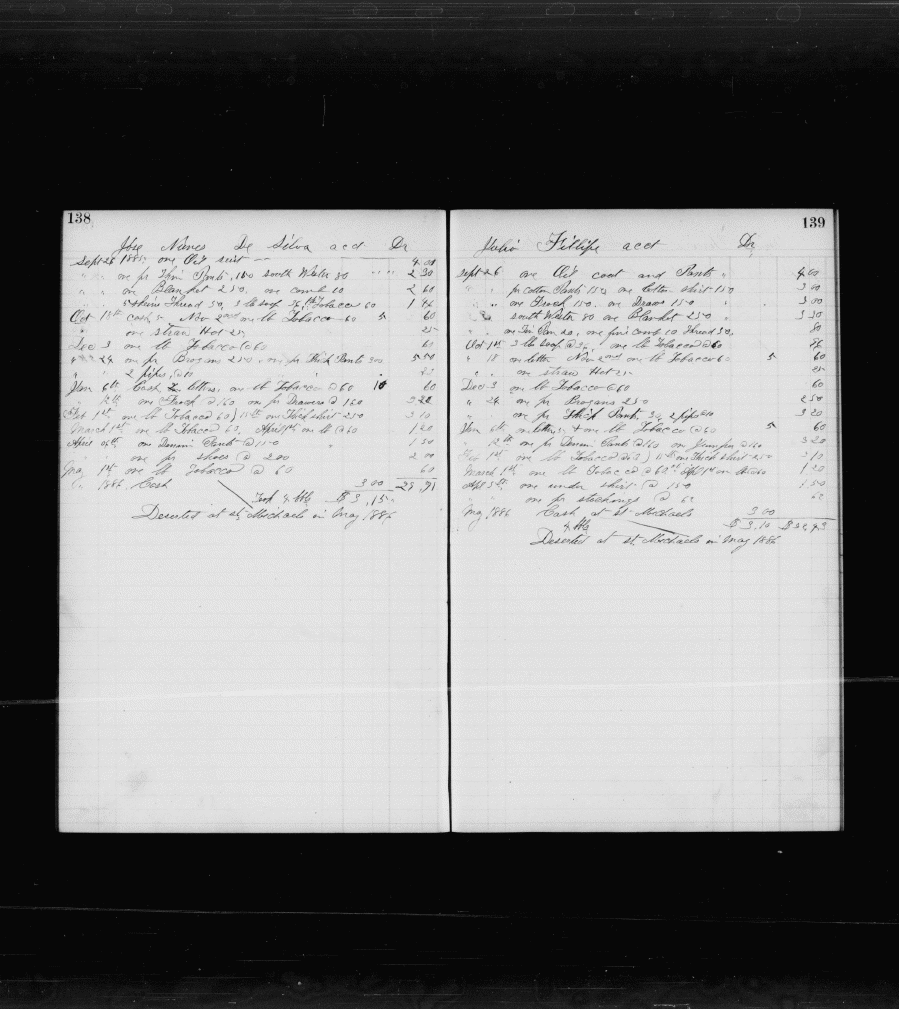 138
Jose Nunes De Silva acct Dr
Sept 26 1885 one Oil suit 4.00
" " one pr Thin Pants 150 south Wester 80 2 30
" " one Blanket 250, one comb 10 2 60
" " 5 skeins Thread 50, 3 lb soap 36, lb Tobacco 60 1 46
Oct cash Nov 2nd one lb Tobacco 60 5 60
" one straw Hat 25 25
Dec 3 one lb Tobacco @ 60 60
" 24 one pr Brogans 250 one pr Thick Pants 300 5 50
" " 2 pipes @ 10
Jan 6th Cash letters, one lb Tobacco @ 60 10 60
" 12th one Frock @ 160 one pr Drawers @ 160 3 20
Feb 1st one lb Tobacco 60 15th one Thick shirt 250 3 10
March 1st one lb Tobacco 60, April 1st one lb @ 60 1 20
April 26th one Denim Pants @ 150 1 50
" one pr shoes @ 200 2 00
May 1st one lb Tobacco @ 60 60
" 1886 Cash 3 00 29,91
$ 3,15
Deserted at St Michaels in May 1886
139
Julio Fillipe acct Dr
Sept 26 one Oil coat and Pants 4.00
" " pr cotton Pants 150 one Cotton shirt 150 3 00
" " one Frock 150, one Draws 150 3 00
" " south Wester 80 one Blanket 250 3 30
" one Tin Pan 20, one fine comb 10 Thread 50, 80
Oct 1st 3 lb soap @ 36, one lb Tobacco @ 60
" 18 one letter Nov 2nd one lb Tobacco 60 5 60
" " one straw Hat 25 25
Dec 3 one lb Tobacco @ 60 60
" 24 one pr Brogans 250 2 50
" " one pr Thick Pants 3, 2 pipes @ 10 3 20
Jan 6th letters, & one lb Tobacco @ 60 5 60
" 12th one pr Denim Pants @ 160 one Jumper @ 160 3 20
Feb 1st one lb Tobacco @ 60 15th one Thick shirt 250 3 10
March 1st one lb Tobacco @ 60 Apl 1st one lb @ 60 1 20
Apl one under shirt @ 150 1 50
" " one pr stockings @ 62 62
May 1886 Cash at St Michaels 3 00
$ 3,10
Deserted at St Michaels in May 1886